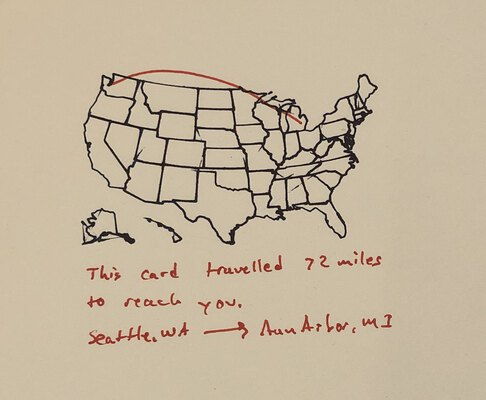 This card travelled 72 miles
to reach you.
Seattle, WA → Ann Arbor, MI